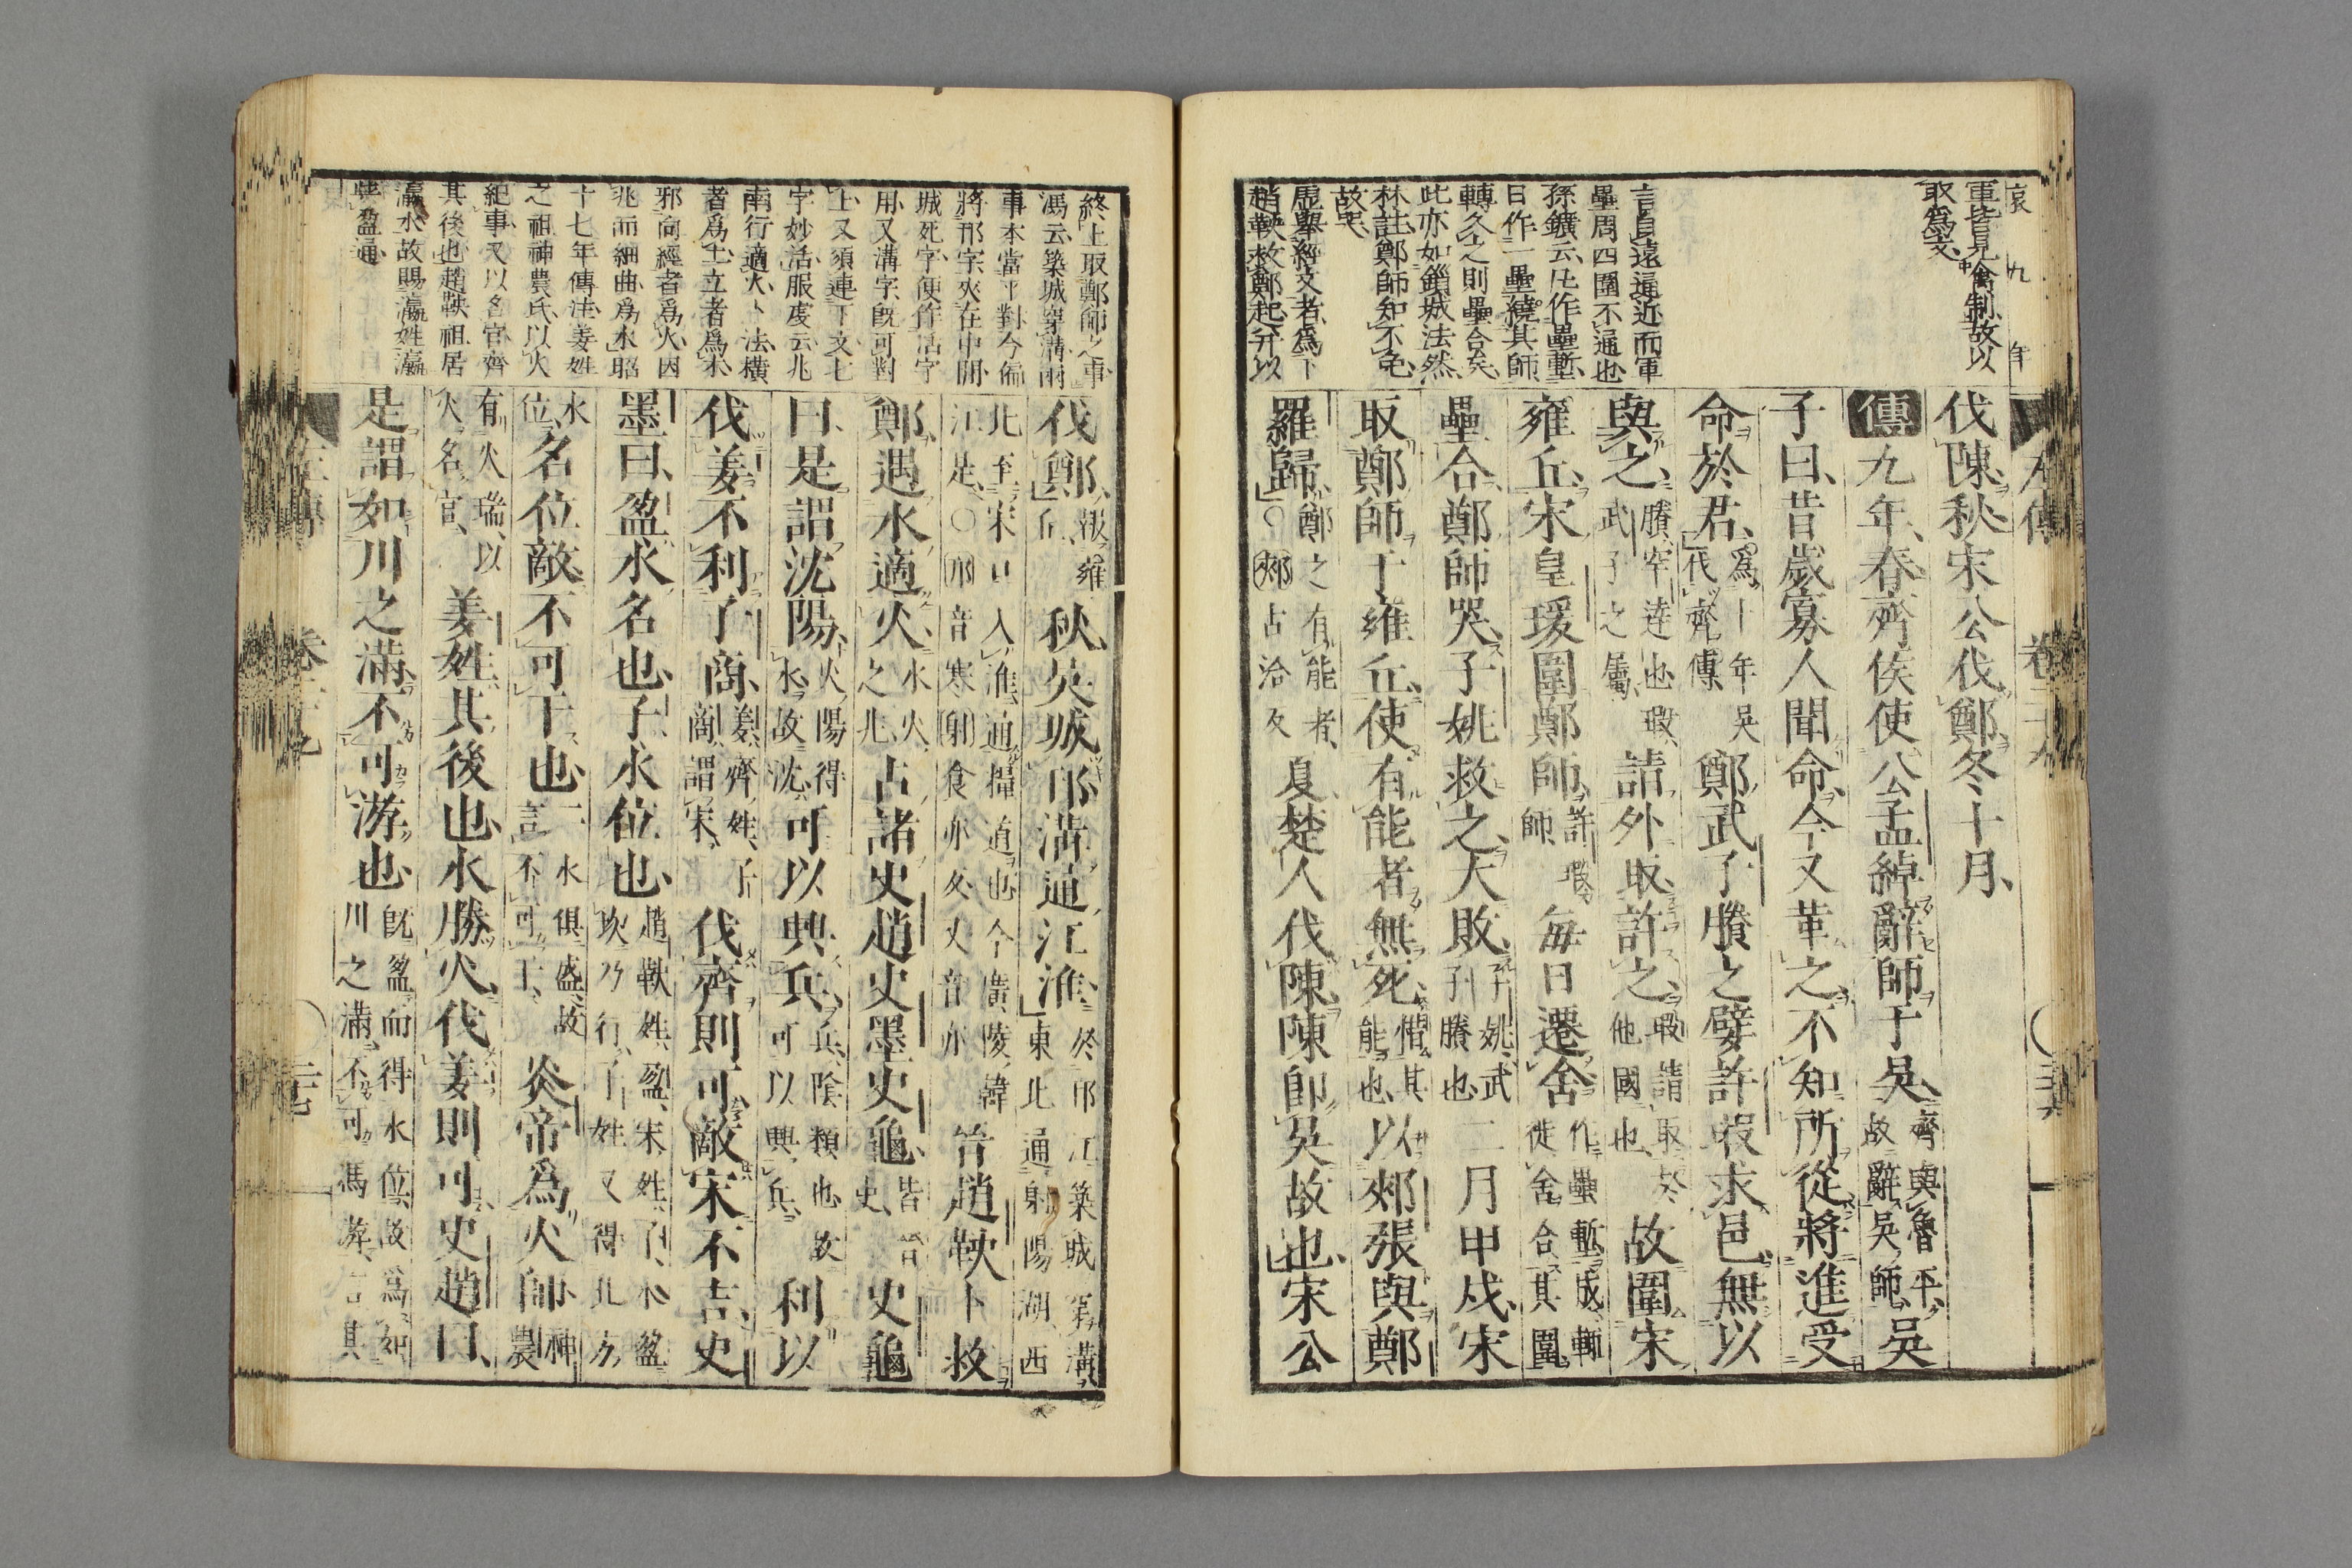 哀九年
重皆見禽制故以
取爲文
言自遠逼近而軍
壘周四圍不通也
孫鑛云作壘塹
日作一壘繞其師
轉久之則壘合矣
此亦如鎖城法然
林註鄭師知不免
故哭
虛舉經文者爲下
趙鞅救鄭起幷以
左傳
伐陳秋宋公伐鄭冬十月
傳九年春齊侯使公孟綽辭師于吳齊與魯平故辭吳師吳
子曰昔歲寡人聞命今又革之不知所從將進受
命於君爲十年吳伐齊傳鄭武子賸之嬖許瑕求邑無以
與之賸罕達也瑕武子之屬請外取許之瑕請取於他國也故圍宋
雍丘宋皇瑗圍鄭師許瑕師每日遷舍作壘塹成輒徙舍合其圍
壘合鄭師哭子姚救之大敗子姚武子賸也二月甲戌宋
取鄭師于雍丘使有能者無死惜其能也以郟張與鄭
羅歸鄭之有能者○郟古洽反夏楚人伐陳陳卽吳故也宋公
終上取鄭師之事
馮云築城穿溝兩
事本當平對今偏
將邗字夾在中閒
城死字便作活字
用又溝字旣可對
上又須連下文七
字妙活服虔云兆
南行適火卜法橫
者爲土立者爲木
邪向經者爲火因
兆而細曲爲水昭
十七年傳注姜姓
之祖神農氏以火
紀事又以名官齊
其後也趙鞅祖居
瀛水故賜瀛姓瀛
與盈通
伐鄭報雍丘秋吳城邗溝通江淮於邗江築城穿溝東北通射陽湖西
北至宋口入淮通糧道也今廣陵韓江是○邗音寒射食亦反又音亦晉趙鞅卜救
鄭遇水適火水火之兆占諸史趙史墨史龜皆晉史史龜
曰是謂沈陽火陽得水故沈可以興兵兵陰類也故可以興兵利以
伐姜不利子商姜齊姓子商謂宋伐齊則可敵宋不吉史
墨曰盈水名也子水位也趙鞅姓盈宋姓子水盈坎乃行子姓又得北方
水位名位敵不可干也二水俱盛故言不可干炎帝爲火師神農
有火瑞以火名官姜姓其後也水勝火伐姜則可史趙曰
是謂如川之滿不可游也旣盈而得水位故爲如川之滿不可馮游言其